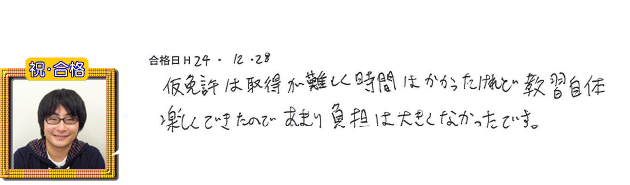 祝・合格
合格日 H24・12・28
仮免許は取得が難しく時間はかかったけれど教習自体
楽しくできたのであまり負担は大きくなかったです。